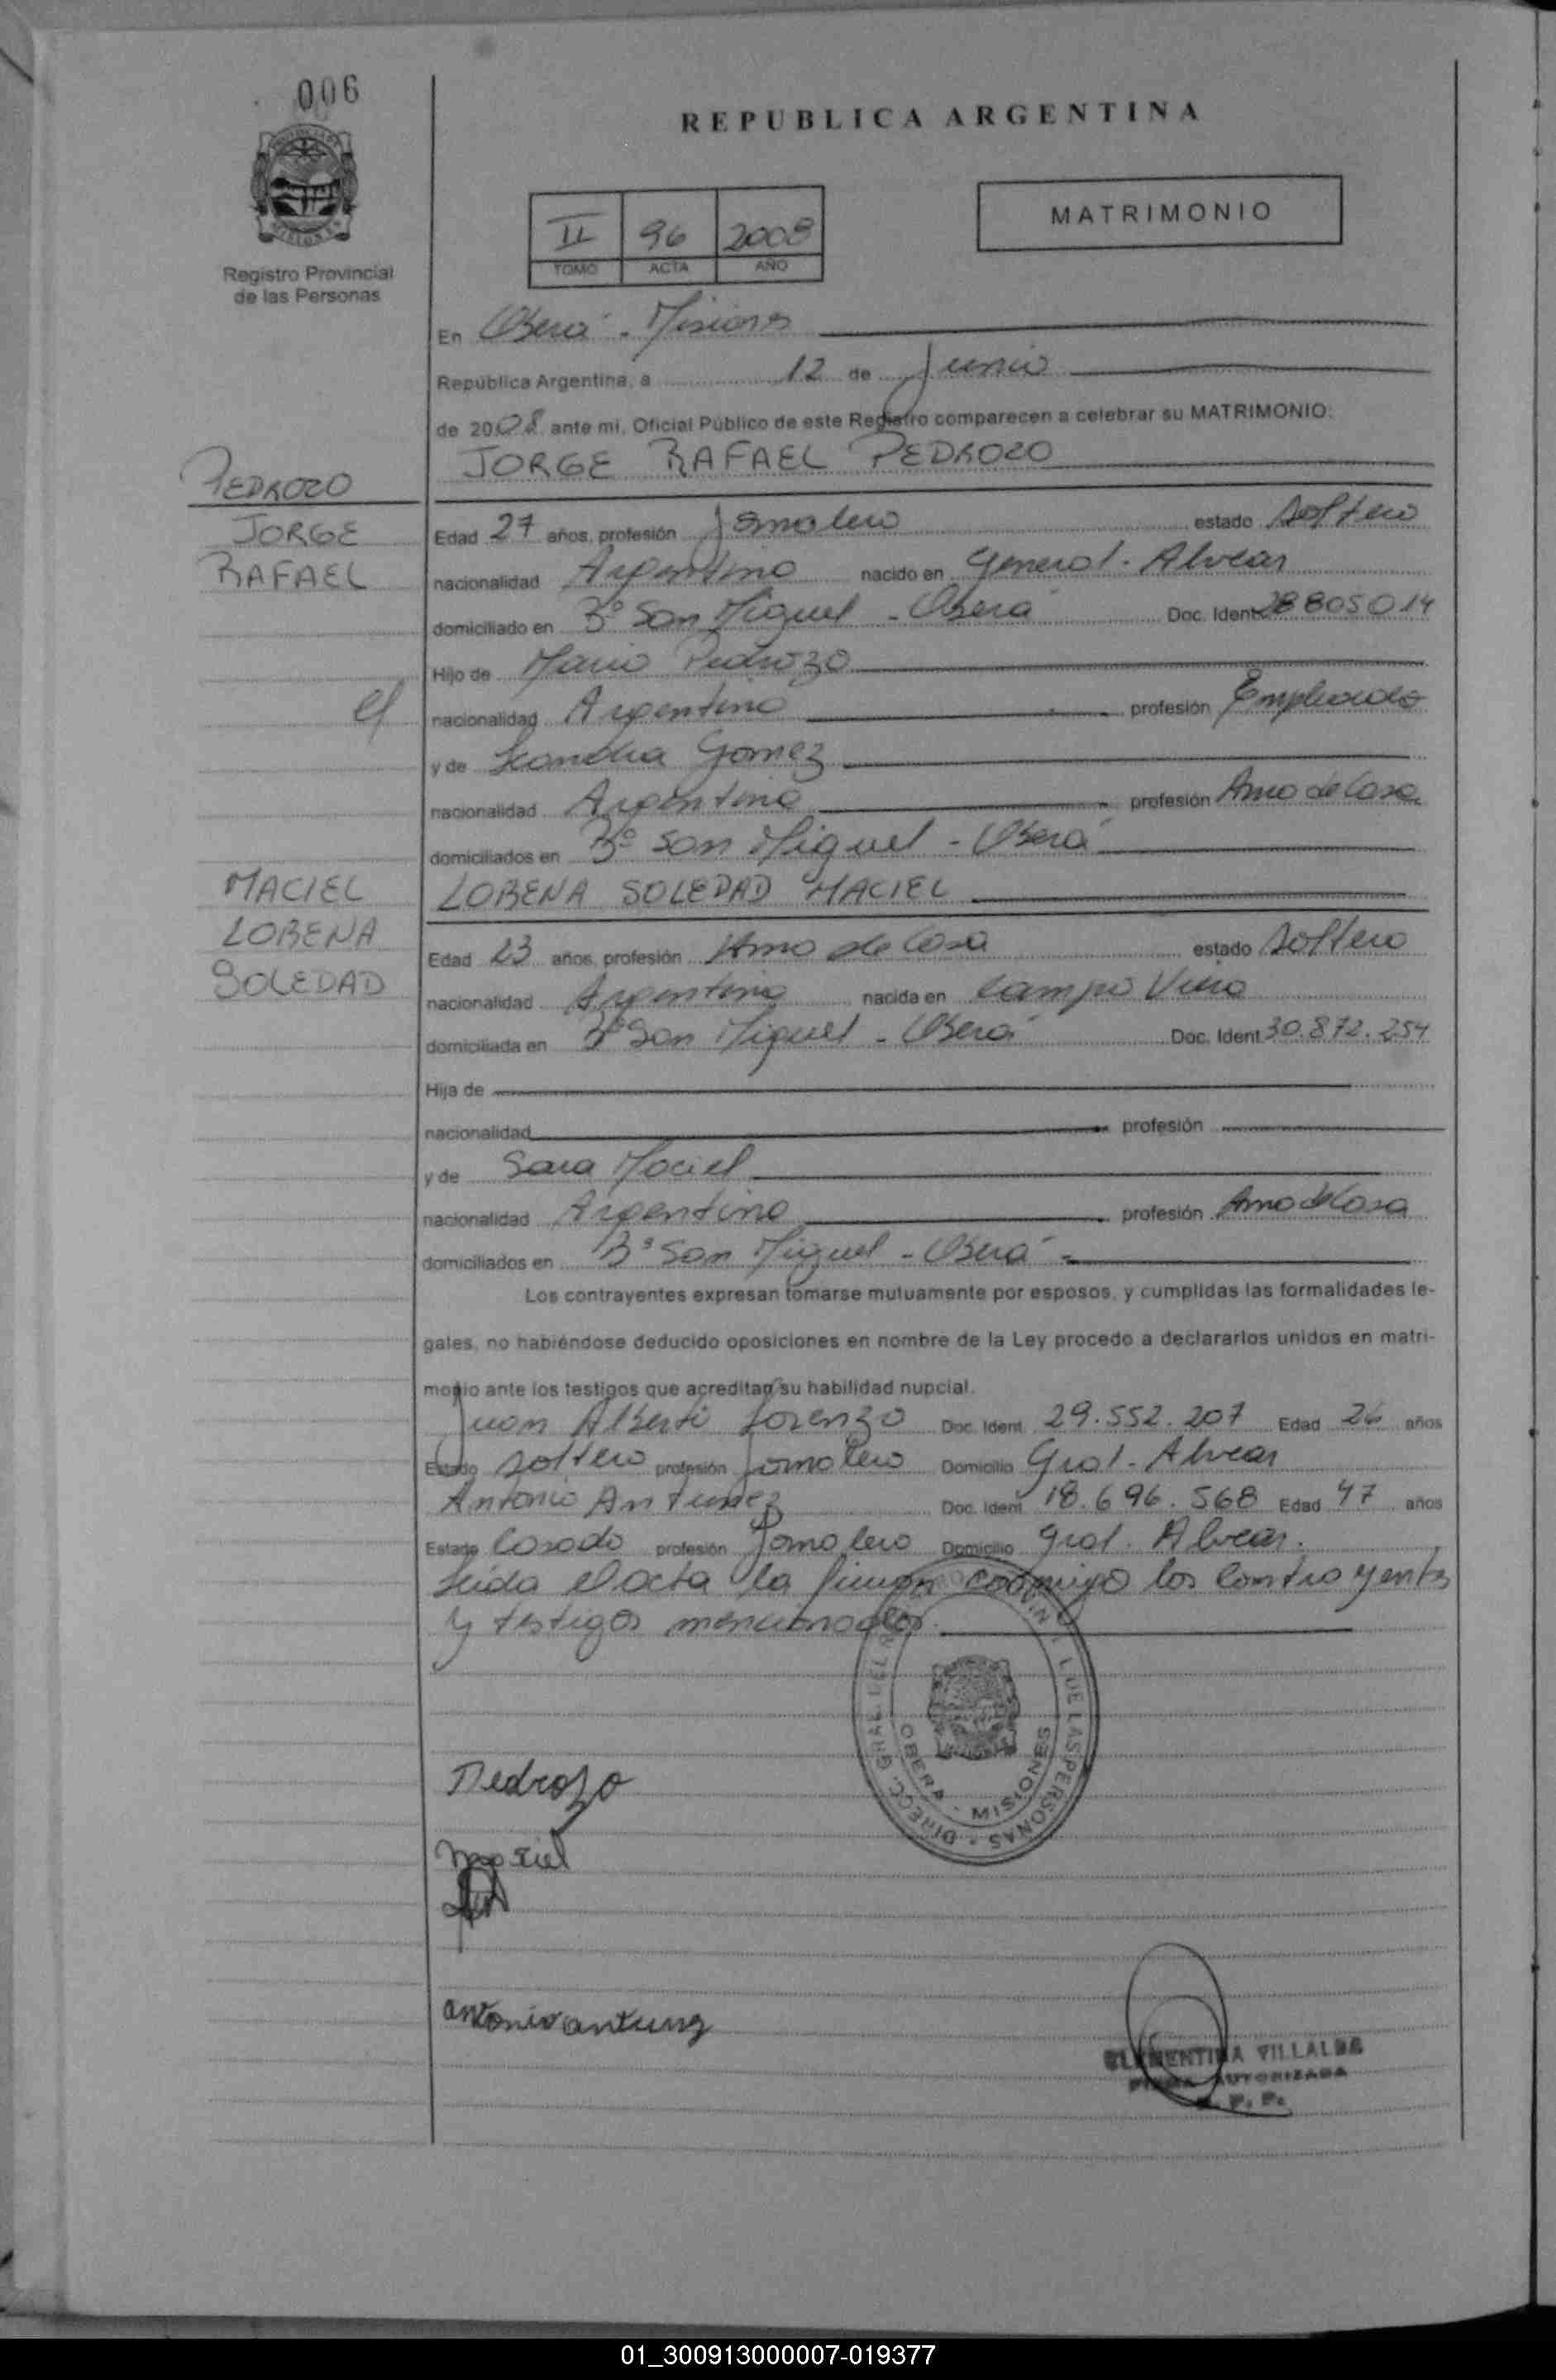 006
REPUBLICA ARGENTINA
II 96 2008
TOMO ACTA AÑO
MATRIMONIO
Registro Provincial
de las Personas
En Oberá - Misiones
República Argentina, a 12 de Junio
de 2008 ante mi, Oficial Público de este Registro comparecen a celebrar su MATRIMONIO:
JORGE RAFAEL PEDROZO
PEDROZO
JORGE
RAFAEL
Edad 27 años, profesión Jornalero estado soltero
nacionalidad Argentina nacido en General - Alvear
domiciliado en Bº San Miguel - Oberá Doc. Ident. 28805014
Hijo de Mario Pedrozo
nacionalidad Argentina profesión Empleado
y de Gomez
nacionalidad Argentina profesión Ama de Casa
domiciliados en Bº San Miguel - Oberá
LORENA SOLEDAD MACIEL
MACIEL
LORENA
SOLEDAD
Edad 23 años, profesión Ama de Casa estado soltera
nacionalidad Argentina nacida en Campo Viera
domiciliada en Bº San Miguel - Oberá Doc. Ident. 30.872.254
Hija de
nacionalidad profesión
y de Sara Maciel
nacionalidad Argentina profesión Ama de Casa
domiciliados en Bº San Miguel - Oberá -
Los contrayentes expresan tomarse mutuamente por esposos, y cumplidas las formalidades le-
gales, no habiéndose deducido oposiciones en nombre de la Ley procedo a declararlos unidos en matri-
monio ante los testigos que acreditan su habilidad nupcial.
Juan Alberto Lorenzo Doc. Ident. 29.552.207 Edad 26 años
Estado soltero profesión Jornalero Domicilio Gral - Alvear
Antonio Antunez Doc. Ident. 18.696.568 Edad 47 años
Estado Casado profesión Jornalero Domicilio Gral. Alvear.
Leida el acta la firman conmigo los contrayentes
y testigos mencionados.
OBERA - MISIONES
Pedrozo
Maciel
antonio antunez
CLEMENTINA VILLALBA
FIRMA AUTORIZADA
R. P. P.
01_300913000007-019377